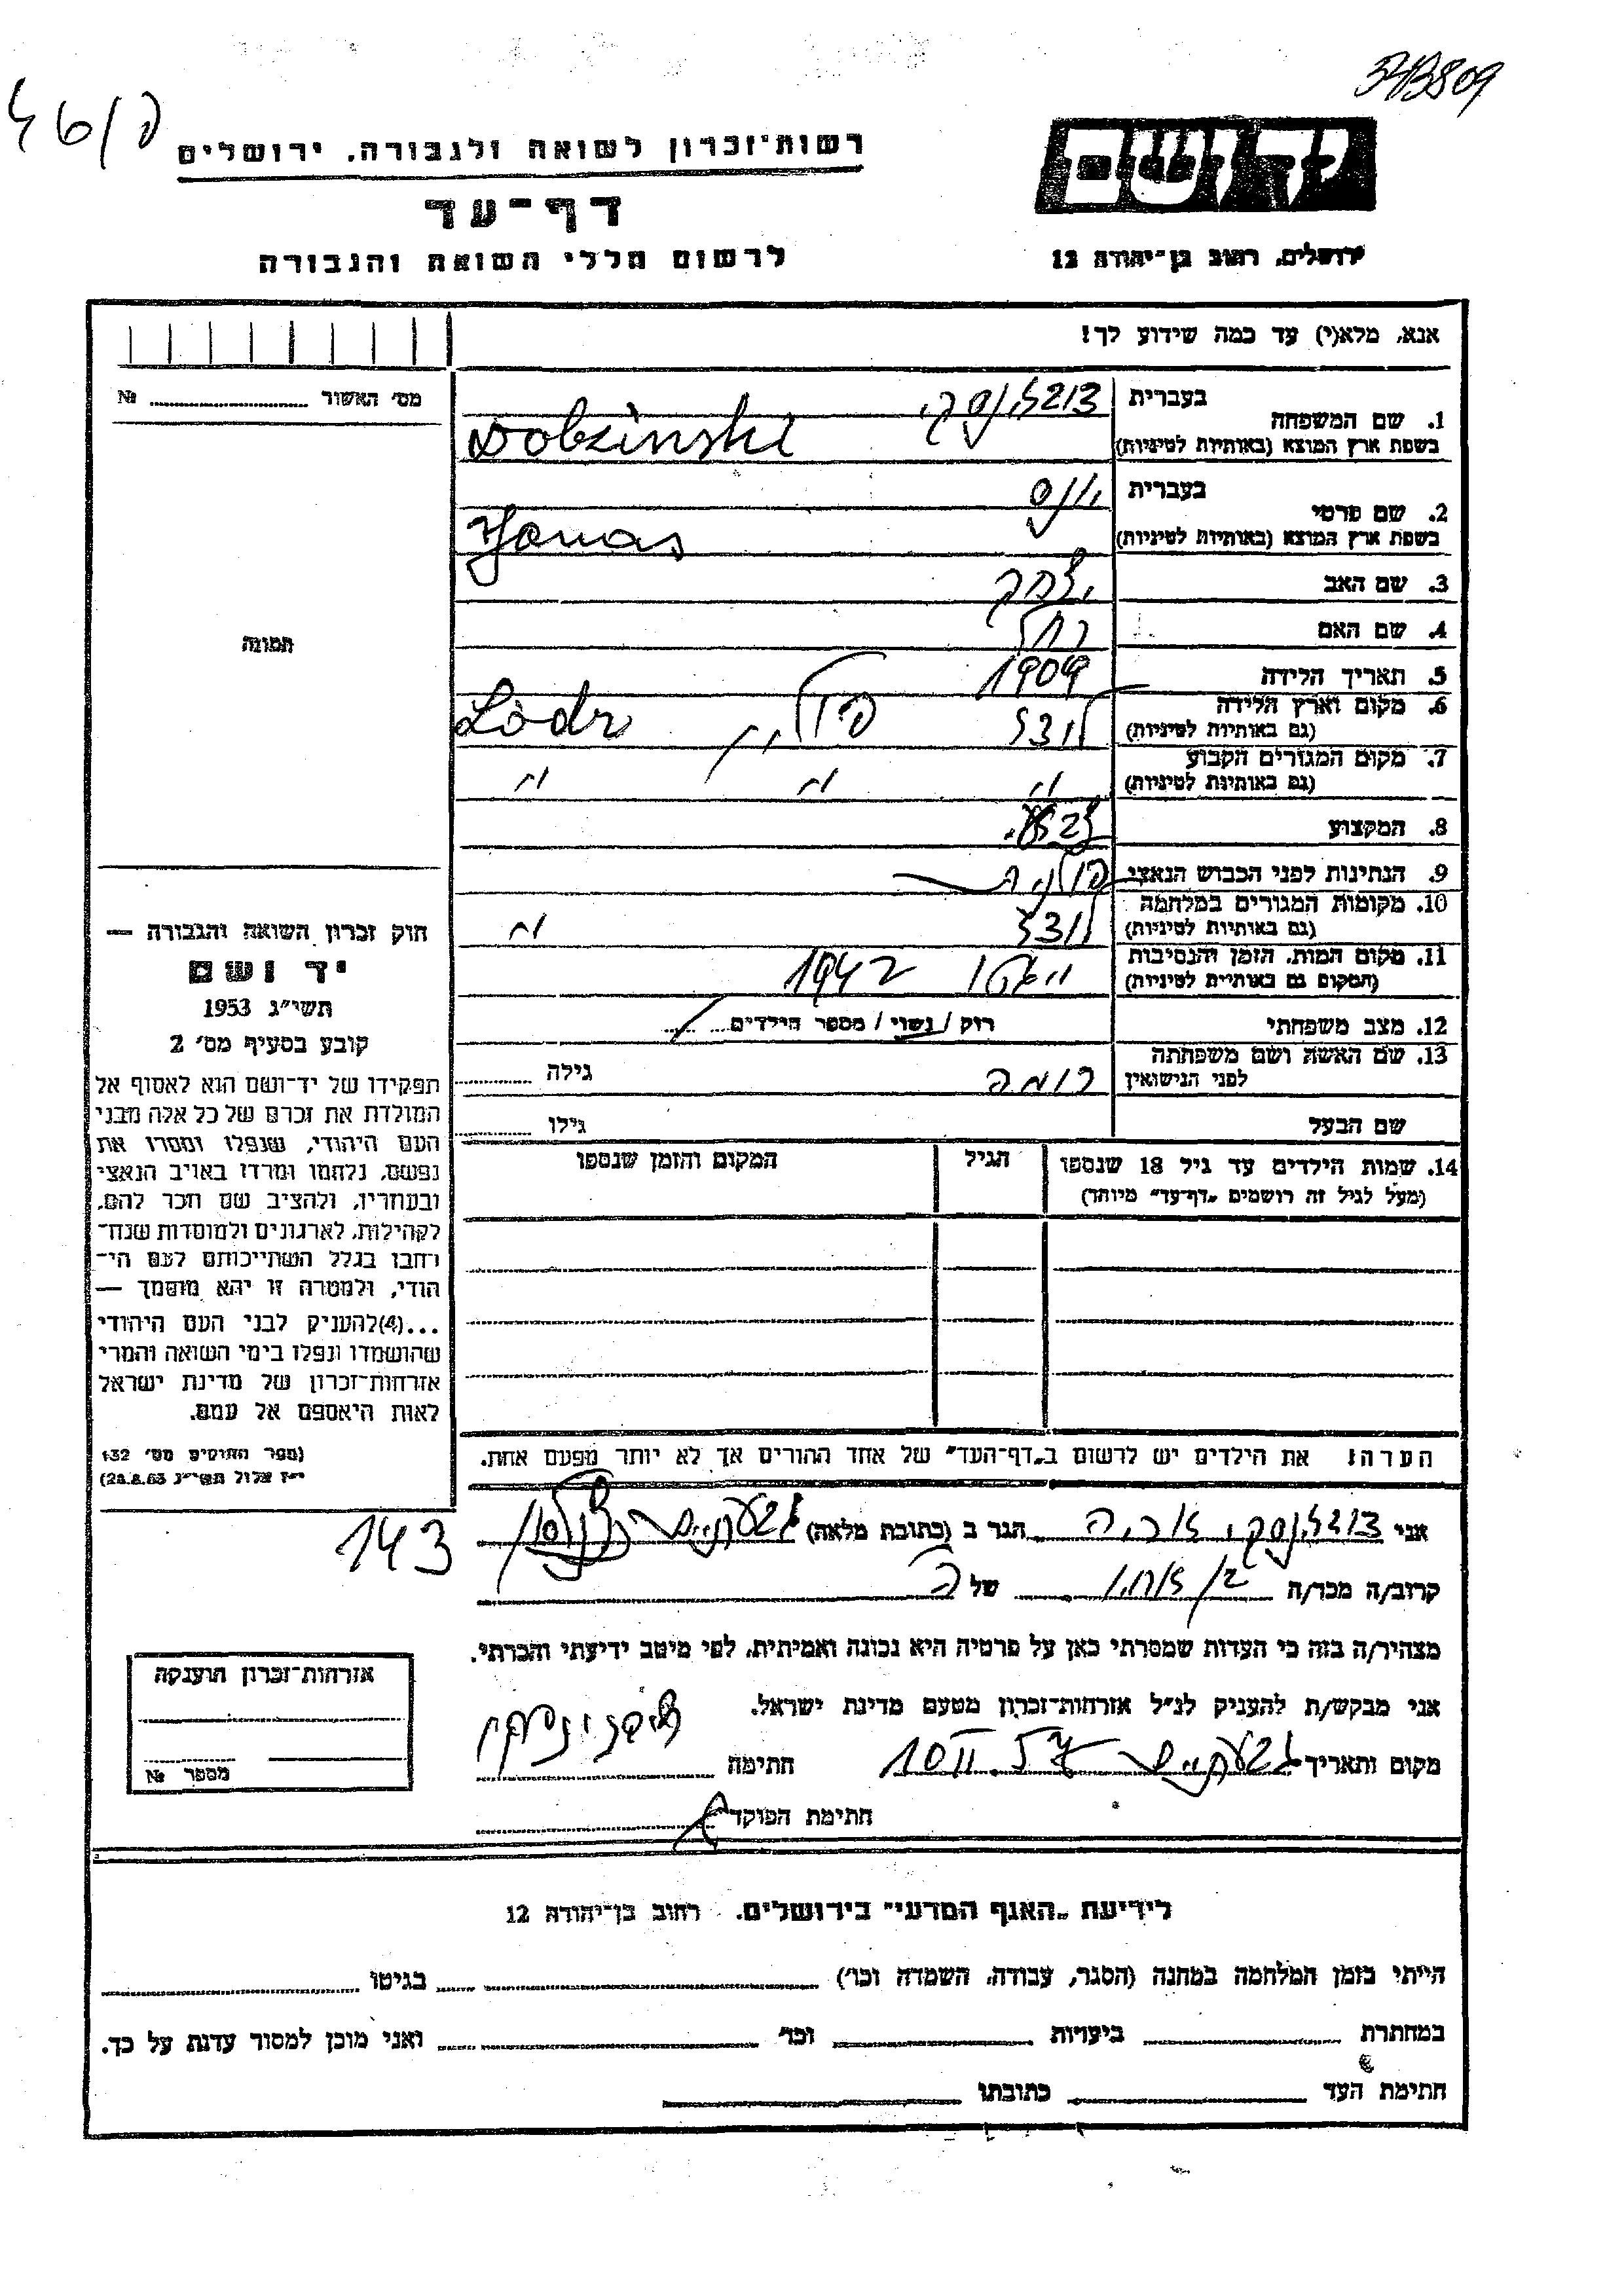 רשות־זכרון לשואה ולגבורה, ירושלים
דף־עד
לרשום חללי השואה והגבורה
יד ושם
ירושלים, רחוב בן־יהודה 12
אנא, מלא(י) עד כמה שידוע לך!
מס' האשור № 
1. שם המשפחה
בעברית דובז'ינסקי
בשפת ארץ המוצא (באותיות לטיניות) Dobzinski
2. שם פרטי
בעברית יונס
בשפת ארץ המוצא (באותיות לטיניות) Jonas
3. שם האב יצחק
4. שם האם רחל
5. תאריך הלידה 1909
6. מקום וארץ הלידה לודז' פולין Lodz
(גם באותיות לטיניות)
7. מקום המגורים הקבוע " " "
(גם באותיות לטיניות)
8. המקצוע
9. הנתינות לפני הכבוש הנאצי פולנית
10. מקומות המגורים במלחמה לודז' "
(גם באותיות לטיניות)
11. מקום המות, הזמן והנסיבות 1942
(המקום גם באותיות לטיניות)
12. מצב משפחתי רוק / נשוי / מספר הילדים
13. שם האשה ושם משפחתה
לפני הנישואין רומה גילה
שם הבעל גילו
14. שמות הילדים עד גיל 18 שנספו הגיל המקום והזמן שנספו
(מעל לגיל זה רושמים "דף־עד" מיוחד)
הערה: את הילדים יש לרשום ב"דף־העד" של אחד ההורים אך לא יותר מפעם אחת.
תמונה
חוק זכרון השואה והגבורה —
יד ושם
תשי"ג 1953
קובע בסעיף מס' 2
תפקידו של יד־ושם הוא לאסוף אל
המולדת את זכרם של כל אלה מבני
העם היהודי, שנפלו ומסרו את
נפשם, נלחמו ומרדו באויב הנאצי
ובעוזריו, ולהציב שם וזכר להם,
לקהילות, לארגונים ולמוסדות שנח־
רבו בגלל השתייכותם לעם הי־
הודי, ולמטרה זו יהא מוסמך —
...(4) להעניק לבני העם היהודי
שהושמדו ונפלו בימי השואה והמרי
אזרחות־זכרון של מדינת ישראל
לאות היאספם אל עמם.
(ספר החוקים מס' 132
י"ז אלול תשי"ג 28.8.53)
אני דובז'ינסקי אריה הגר ב (כתובת מלאה) גבעתיים
143
קרוב/ה מכר/ה של
מצהיר/ה בזה כי העדות שמסרתי כאן על פרטיה היא נכונה ואמיתית, לפי מיטב ידיעתי והכרתי.
אני מבקש/ת להעניק לנ"ל אזרחות־זכרון מטעם מדינת ישראל.
מקום ותאריך גבעתיים חתימה
חתימת הפוקד
אזרחות־זכרון הוענקה
מספר №
לידיעת "האגף המדעי" בירושלים, רחוב בן־יהודה 12
הייתי בזמן המלחמה במחנה (הסגר, עבודה, השמדה וכו') בגיטו
במחתרת ביערות וכו' ואני מוכן למסור עדות על כך.
חתימת העד כתובתו